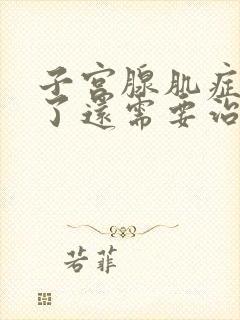 子宫腺肌症
了还需要治
若菲